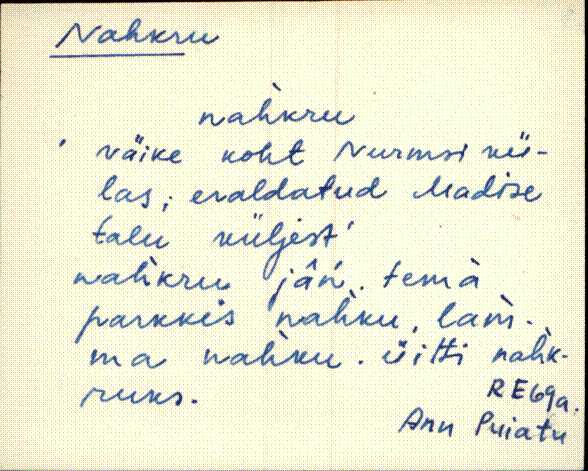 Nahkru
nah̀kru
' väike koht Nurmsi kü-
las, eraldatud Madise
talu küljest'
nah̀kru jâǹ. temä
parkkis nah̀ku, lam̀-
ma nah̀ku. üitti nah̀k-
ruks.
RE69a.
Ann Puiatu